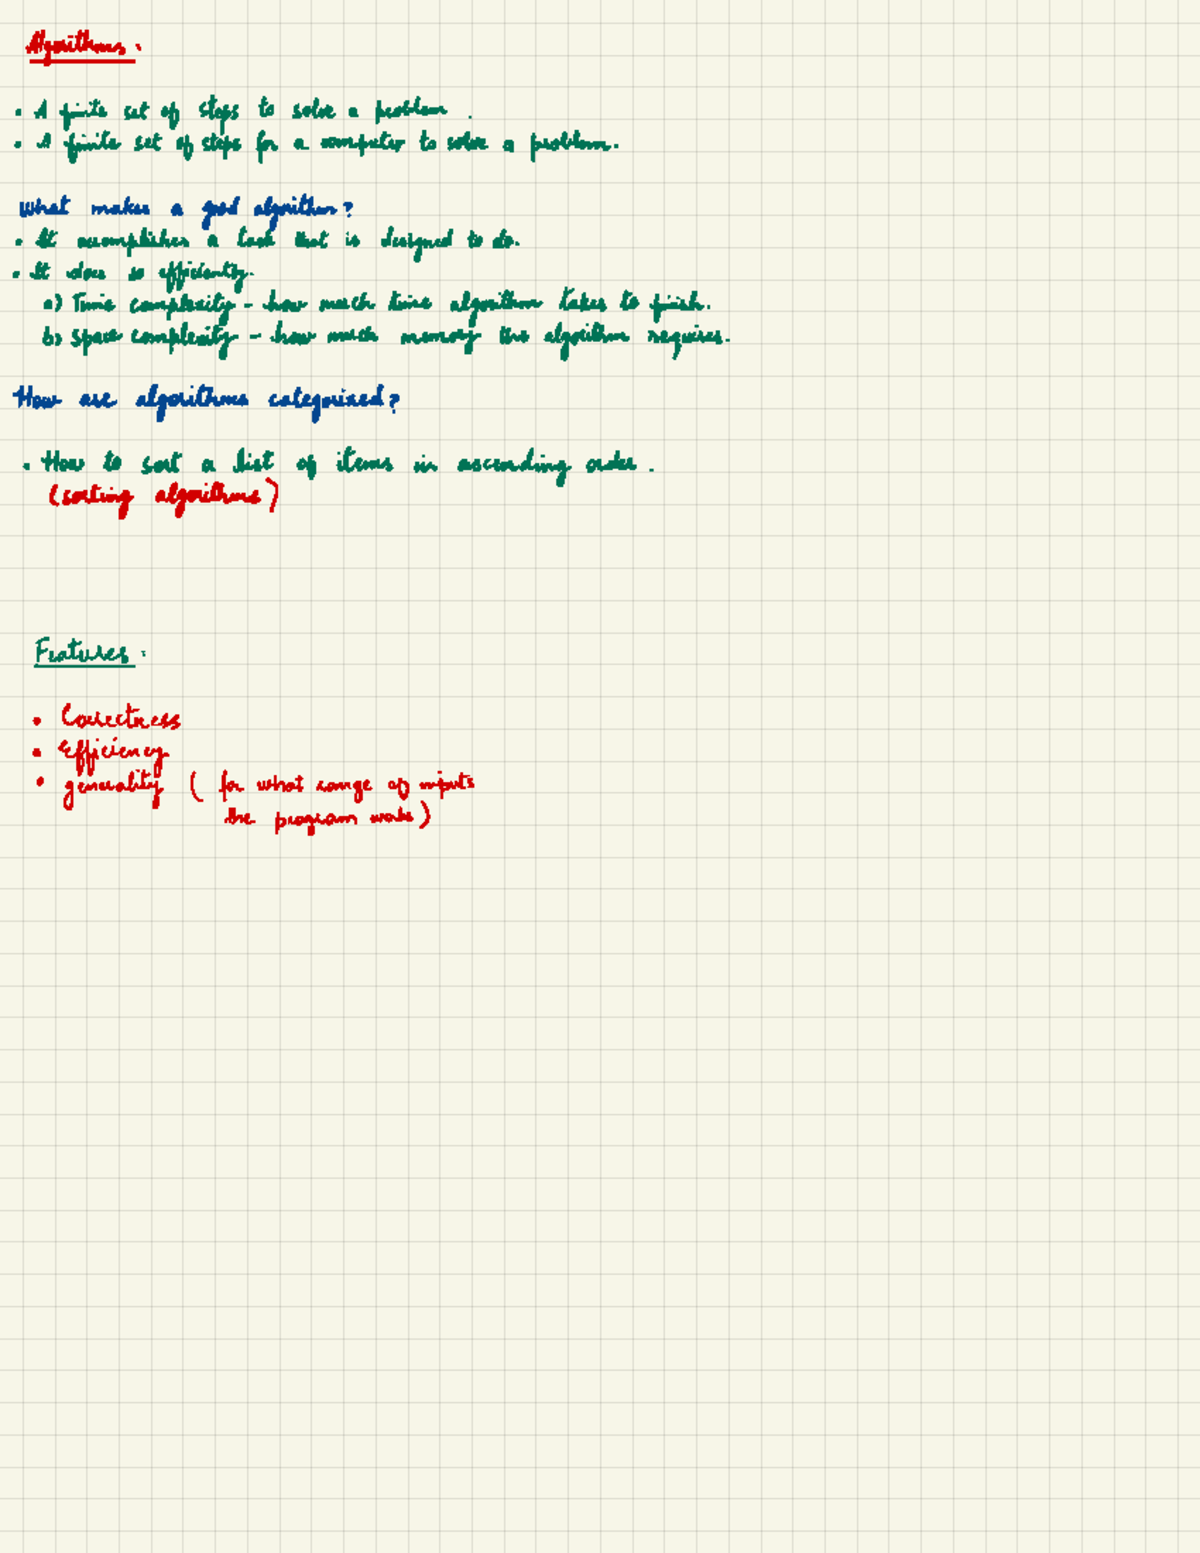 Algorithms :
• A finite set of steps to solve a problem .
• A finite set of steps for a computer to solve a problem.
What makes a good algorithm?
• It accomplishes a task that is designed to do.
• It does so efficiently.
a) Time complexity - how much time algorithm takes to finish.
b) Space complexity - how much memory the algorithm requires.
How are algorithms categorized?
• How to sort a list of items in ascending order .
(sorting algorithms)
Features :
• Correctness
• Efficiency
• generality ( for what range of inputs
the program works)